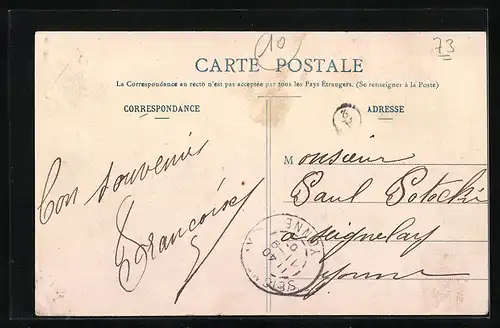 10
73
CARTE POSTALE
La Correspondance au recto n'est pas acceptée par tous les Pays Etrangers. (Se renseigner à la Poste)
CORRESPONDANCE
ADRESSE
Bon souvenir
Françoise
Monsieur
Paul Potocki
a Seignelay
Yonne
YONNE